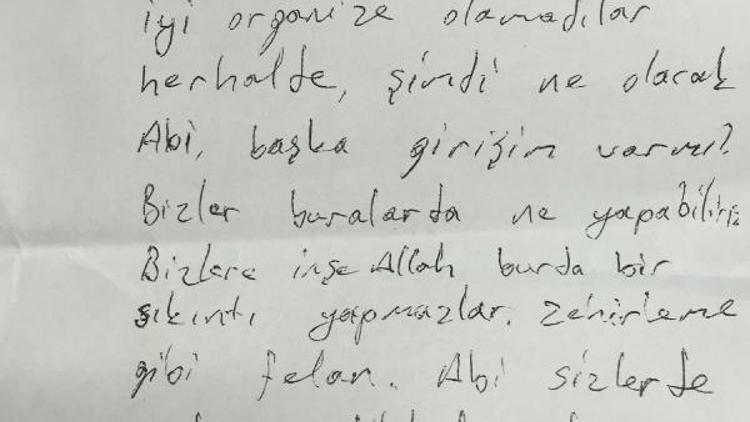 iyi organize olamadılar
herhalde, şimdi ne olacak
Abi, başka girişim varmı?
Bizler buralarda ne yapabiliriz
Bizlere inşe Allah burda bir
sıkıntı yapmazlar. Zehirleme
gibi felan. Abi sizlerde